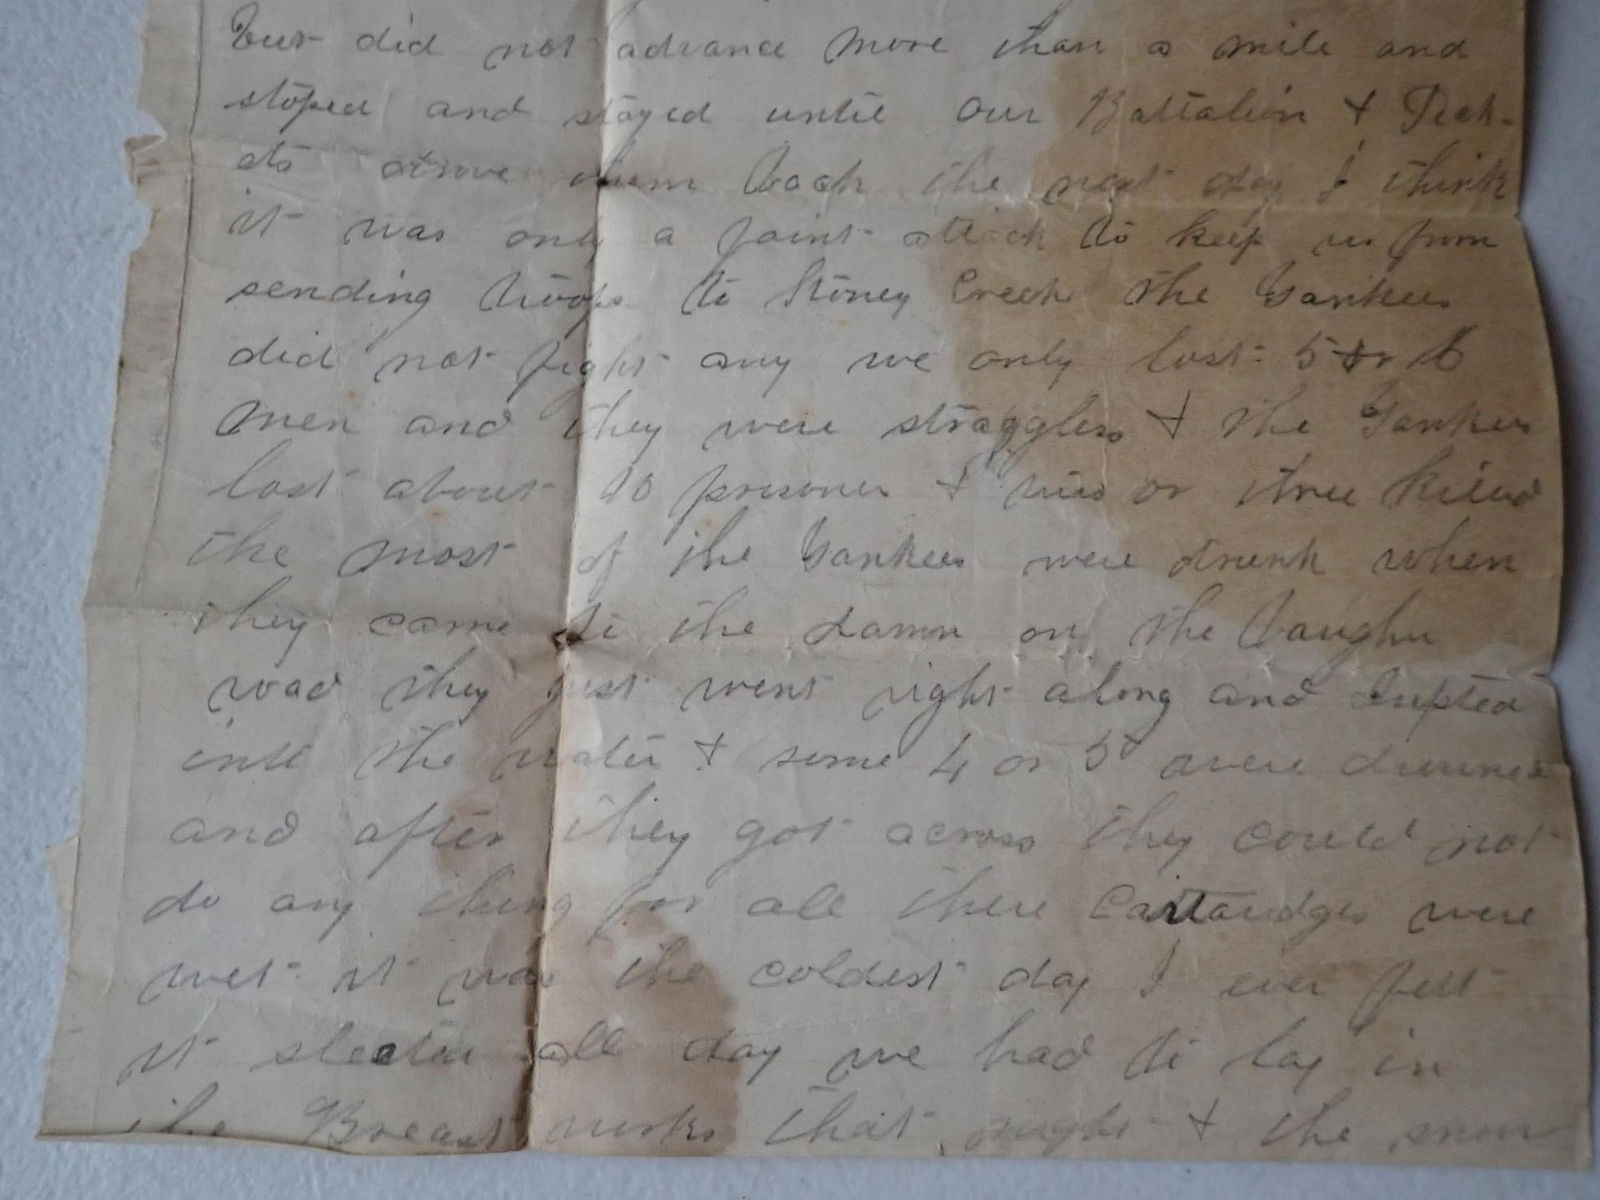 but did not advance more than a mile and
stoped and stayed until our Battalion & Pick-
ets drove them back the next day I think
it was only a faint attack to keep us from
sending troops to Stoney Creek the Yankees
did not fight any we only lost 5 or 6
men and they were stragglers & the Yankees
lost about 40 prisoners & two or three killed
the most of the Yankees were drunk when
they came to the damn on the Vaughn
road they just went right along and
into the water & some 4 or 5 were drowned
and after they got across they could not
do any thing for all there Cartaridges were
wet it was the coldest day I ever felt
it sleeted all day we had to lay in
the Breast works that night & the